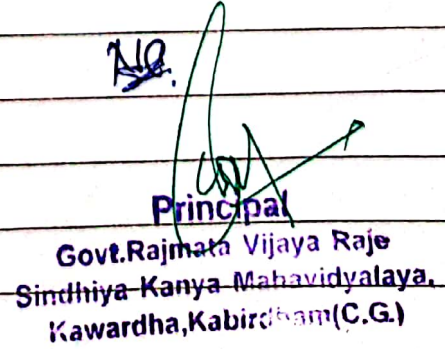 Principal
Govt.Rajmata Vijaya Raje
Sindhiya Kanya Mahavidyalaya,
Kawardha,Kabirdham(C.G.)